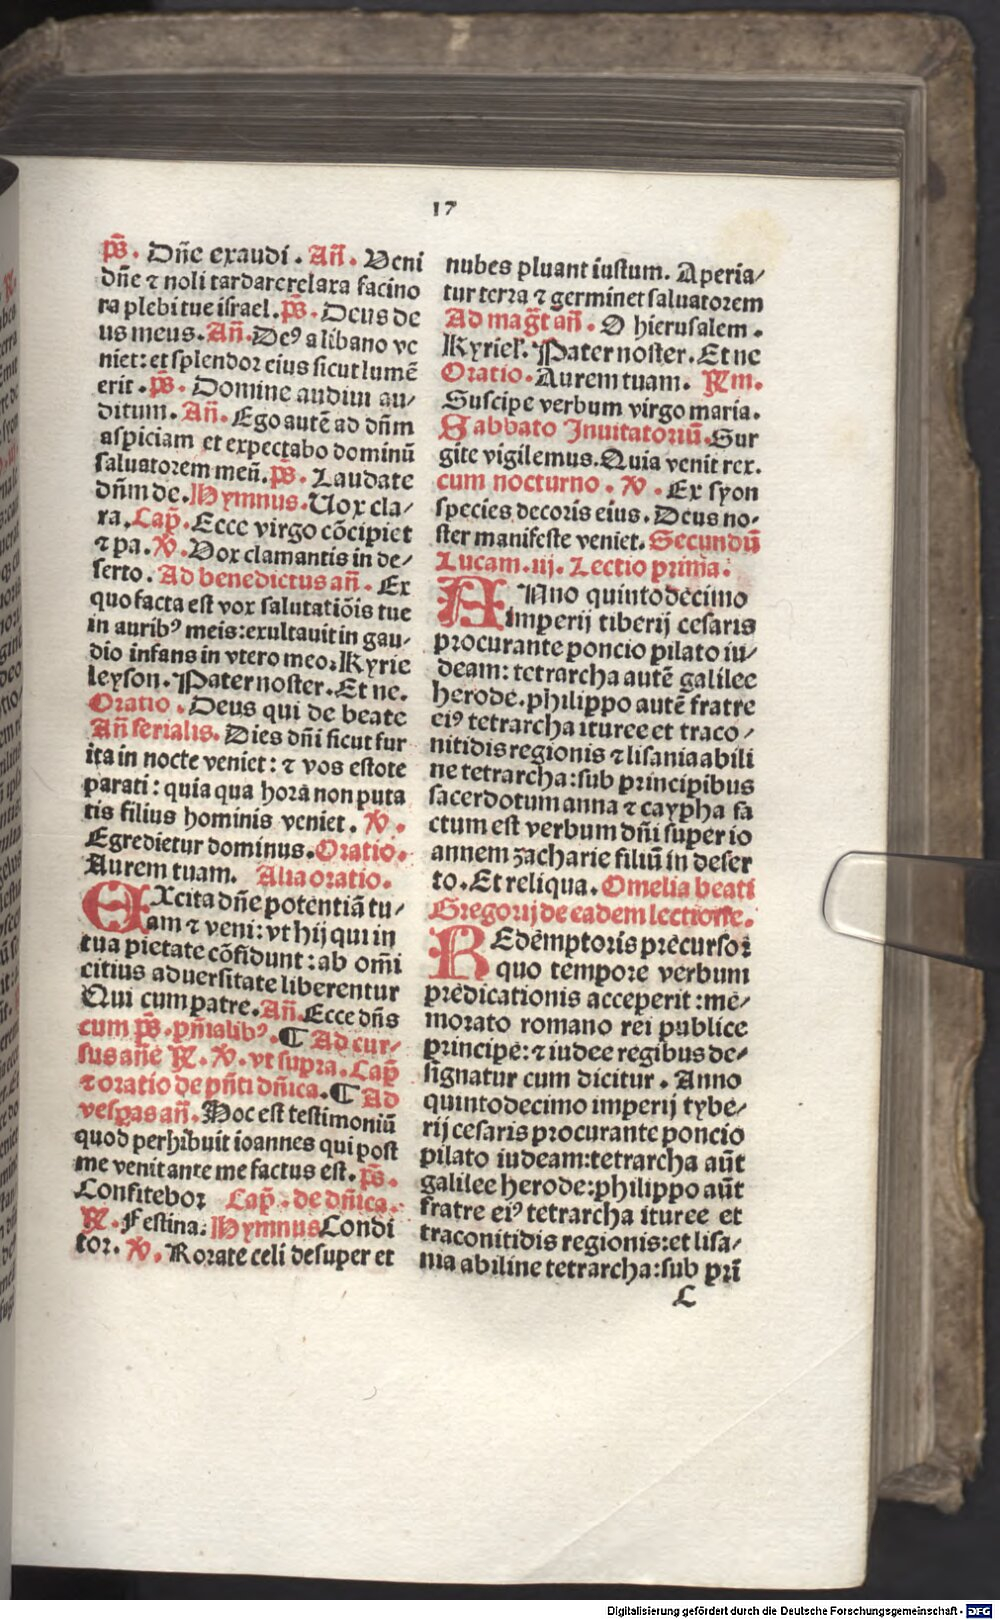 17
ps̄. Dn̄e exaudi. An̄. Veni
dn̄e ⁊ noli tardare relaxa facino
ra plebi tue israel. ps̄. Deus de
us meus. An̄. Deꝰ a libano ve
niet: et splendor eius sicut lumē
erit. ps̄. Domine audiui au⸗
ditum. An̄. Ego autē ad dn̄m
aspiciam et expectabo dominū
saluatorem meū. ps̄. Laudate
dn̄m de. Hymnus. Uox cla⸗
ra. Cap̄. Ecce virgo cōcipiet
⁊ pa. ℣. Vox clamantis in de⸗
serto. Ad benedictus an̄. Ex
quo facta est vox salutatiōis tue
in auribꝰ meis: exultauit in gau⸗
dio infans in vtero meo. Kyrie
leyson. Pater noster. Et ne.
Oratio. Deus qui de beate
An̄ ferialis. Dies dn̄i sicut fur
ita in nocte veniet: ⁊ vos estote
parati: quia qua hora non puta
tis filius hominis veniet. ℣.
Egredietur dominus. Oratio.
Aurem tuam. Alia oratio.
EXcita dn̄e potentiā tu⸗
am ⁊ veni: vt hij qui in
tua pietate cōfidunt: ab om̄i
citius aduersitate liberentur
Qui cum patre. An̄. Ecce dn̄s
cum ps̄. pn̄ialibꝰ. ¶ Ad cur⸗
sus an̄e ℟. ℣. vt supra. Cap̄
⁊ oratio de pn̄ti dn̄ica. ¶ Ad
vesꝑas an̄. Hoc est testimoniū
quod perhibuit ioannes qui post
me venit ante me factus est. ps̄.
Confitebor Cap̄. de dn̄ica.
℟. Festina. Hymnus Condi
tor. ℣. Rorate celi desuper et
nubes pluant iustum. Aperia⸗
tur terra ⁊ germinet saluatorem
Ad maḡt an̄. O hierusalem.
Kyriel̄. Pater noster. Et ne
Oratio. Aurem tuam. ℟m.
Suscipe verbum virgo maria.
Sabbato Inuitatoriū. Sur
gite vigilemus. Quia venit rex.
cum nocturno. ℣. Ex syon
species decoris eius. Deus no⸗
ster manifeste veniet. Secundū
Lucam. iij. Lectio prima.
ANno quintodecimo
imperij tiberij cesaris
procurante poncio pilato iu⸗
deam: tetrarcha autē galilee
herode. philippo autē fratre
eiꝰ tetrarcha ituree et traco⸗
nitidis regionis ⁊ lisania abili
ne tetrarcha: sub principibus
sacerdotum anna ⁊ caypha fa
ctum est verbum dn̄i super io
annem zacharie filiū in deser
to. Et reliqua. Omelia beati
Gregorij de eadem lectione.
REdemptoris precursor
quo tempore verbum
predicationis acceperit: me⸗
morato romano rei publice
principe: ⁊ iudee regibus de⸗
signatur cum dicitur. Anno
quintodecimo imperij tybe⸗
rij cesaris procurante poncio
pilato iudeam: tetrarcha aūt
galilee herode: philippo aūt
fratre eiꝰ tetrarcha ituree et
traconitidis regionis: et lisa⸗
nia abiline tetrarcha: sub pri̅
C
Digitalisierung gefördert durch die Deutsche Forschungsgemeinschaft - DFG